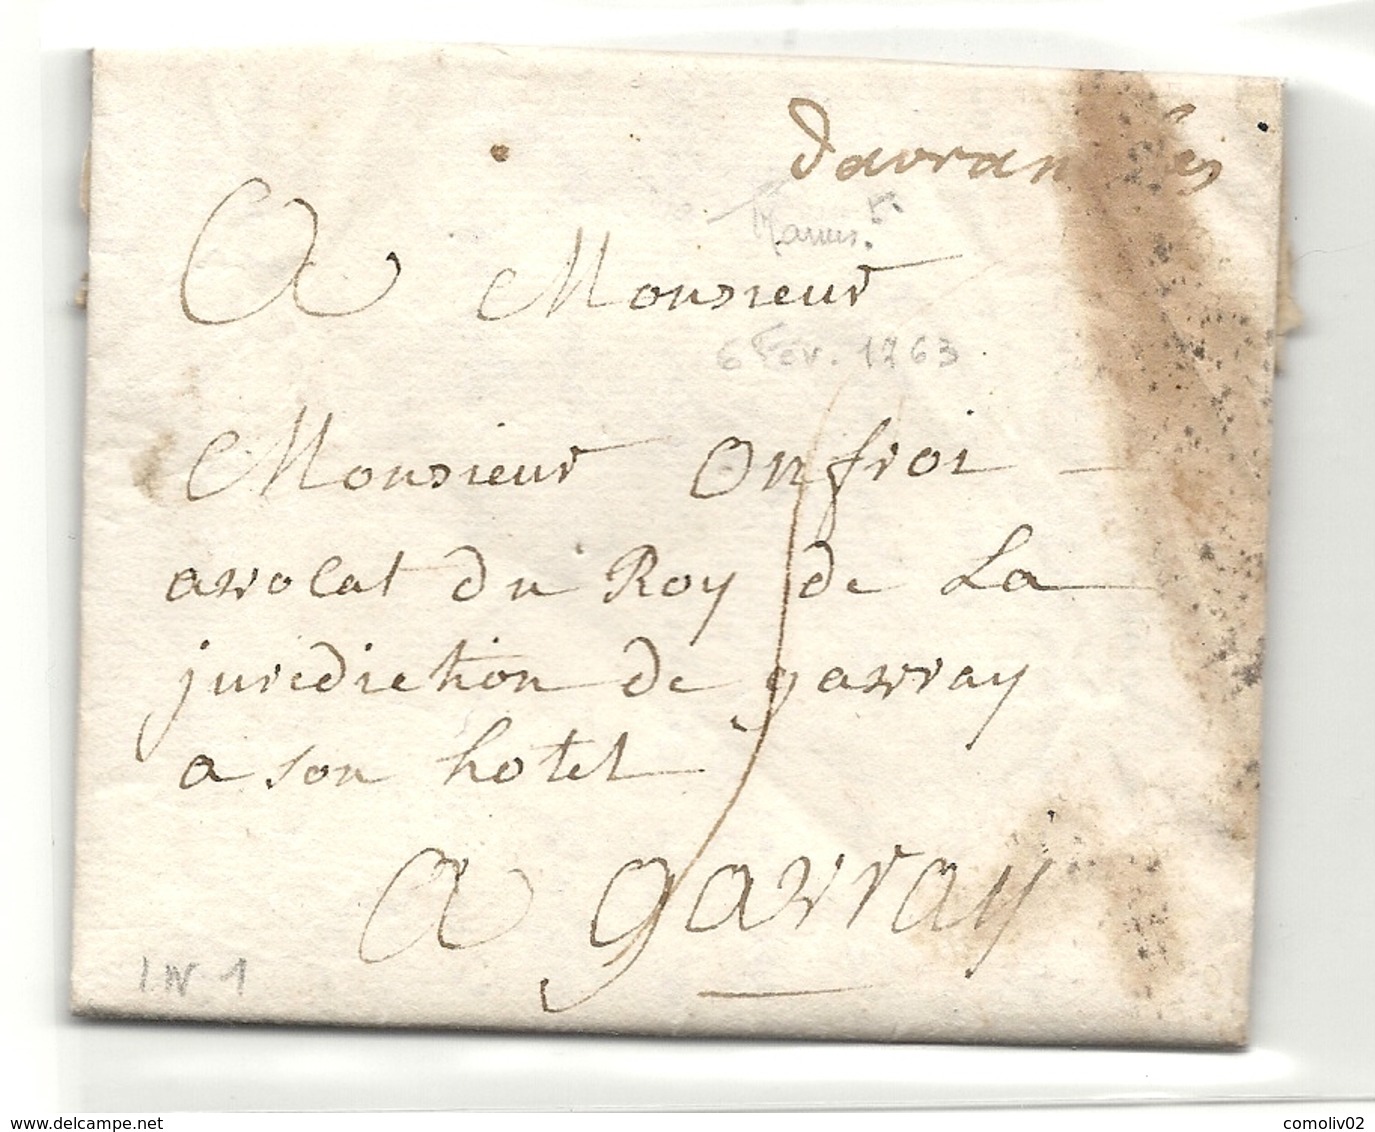 davranches
Manus.
A Monsieur
6 Fev. 1763
Monsieur Onfroi
avocat du Roy de La
jurediction de gavray
a son hotel
a gavray
IN 1
www.delcampe.net
comoliv02